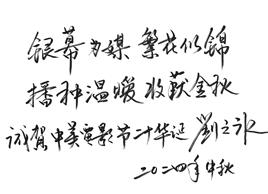 银幕为媒 繁花似锦
播种温暖 收获金秋
诚贺中美电影节二十华诞 刘之冰
二〇二四年中秋